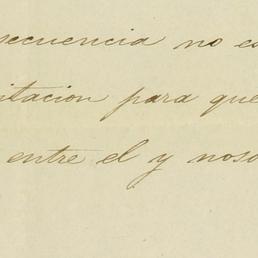 secuencia no es
itacion para que
entre el y noso